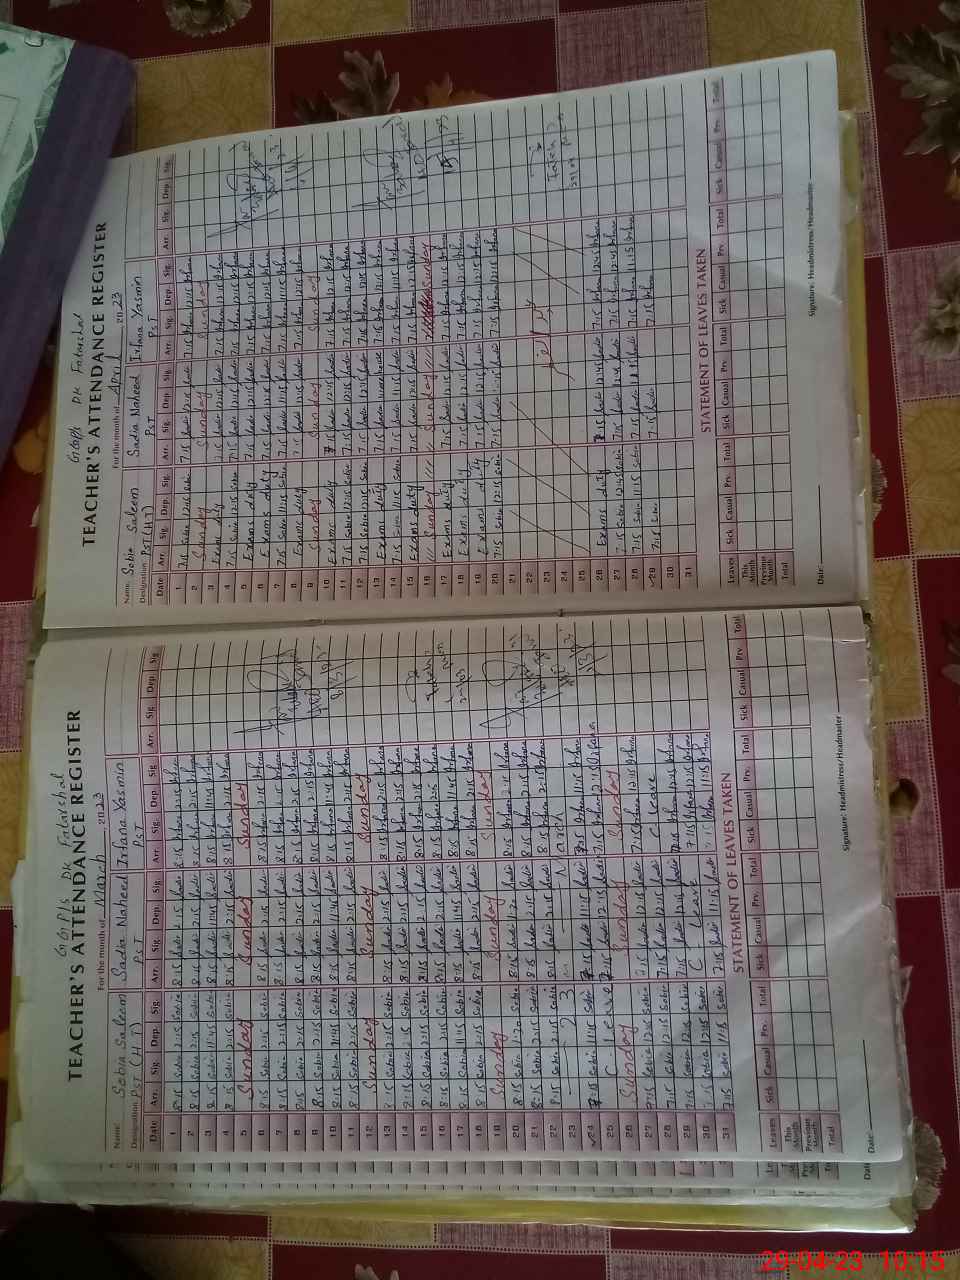 GGPIs DK Fatarshal
TEACHER'S ATTENDANCE REGISTER
For the month of March 2023
Name: Sobia Saleem Sadia Naheed Irfana Yasmin
Designation PST (HT) PST PST
Date Arr. Sig. Dep. Sig. Arr. Sig. Dep. Sig. Arr. Sig. Dep. Sig. Arr. Sig. Dep. Sig.
1 8:15 Sobia 2:15 Sobia 8:15 Sadia 2:15 Sadia 8:15 Irfana 2:15 Irfana
2 8:15 Sobia 2:15 Sobia 8:15 Sadia 2:15 Sadia 8:15 Irfana 2:15 Irfana
3 8:15 Sobia 11:45 Sobia 8:15 Sadia 11:45 Sadia 8:15 Irfana 11:45 Irfana
4 8:15 Sobia 2:15 Sobia 8:15 Sadia 2:15 Sadia 8:15 Irfana 2:15 Irfana
5 Sunday Sunday Sunday
6 8:15 Sobia 2:15 Sobia 8:15 Sadia 2:15 Sadia 8:15 Irfana 2:15 Irfana
7 8:15 Sobia 2:15 Sobia 8:15 Sadia 2:15 Sadia 8:15 Irfana 2:15 Irfana
8 8:15 Sobia 2:15 Sobia 8:15 Sadia 2:15 Sadia 8:15 Irfana 2:15 Irfana
9 8:15 Sobia 2:15 Sobia 8:15 Sadia 2:15 Sadia 8:15 Irfana 2:15 Irfana
10 8:15 Sobia 11:45 Sobia 8:15 Sadia 11:45 Sadia 8:15 Irfana 11:45 Irfana
11 8:15 Sobia 2:15 Sobia 8:15 Sadia 2:15 Sadia 8:15 Irfana 2:15 Irfana
12 Sunday Sunday Sunday
13 8:15 Sobia 2:15 Sobia 8:15 Sadia 2:15 Sadia 8:15 Irfana 2:15 Irfana
14 8:15 Sobia 2:15 Sobia 8:15 Sadia 2:15 Sadia 8:15 Irfana 2:15 Irfana
15 8:15 Sobia 2:15 Sobia 8:15 Sadia 2:15 Sadia 8:15 Irfana 2:15 Irfana
16 8:15 Sobia 2:15 Sobia 8:15 Sadia 2:15 Sadia 8:15 Irfana 2:15 Irfana
17 8:15 Sobia 11:45 Sobia 8:15 Sadia 11:45 Sadia 8:15 Irfana 11:45 Irfana
18 8:15 Sobia 2:15 Sobia 8:15 Sadia 2:15 Sadia 8:15 Irfana 2:15 Irfana
19 Sunday Sunday Sunday
20 8:15 Sobia 1:20 Sobia 8:15 Sadia 1:20 Sadia 8:15 Irfana
21 8:15 Sobia 2:15 Sobia 8:15 Sadia 2:15 Sadia 8:15 Irfana 2:15 Irfana
22 8:15 Sobia 2:15 Sobia 8:15 Sadia 2:15 Sadia 8:15 Irfana 2:15 Irfana
23 23 March
24 7:15 Sobia 11:15 Sobia 7:15 Sadia 11:15 Sadia 7:15 Irfana 11:15 Irfana
25 C. leave 7:15 Sadia 12:15 Sadia 7:15 Irfana 12:15 Irfana
26 Sunday Sunday Sunday
27 7:15 Sobia 12:15 Sobia 7:15 Sadia 12:15 Sadia 7:15 Irfana 12:15 Irfana
28 7:15 Sobia 12:15 Sobia 7:15 Sadia 12:15 Sadia C leave
29 7:15 Sobia 12:15 Sobia 7:15 Sadia 12:15 Sadia 7:15 Irfana 12:15 Irfana
30 7:15 Sobia 12:15 Sobia C leave 7:15 Irfana 12:15 Irfana
31 7:15 Sobia 11:15 Sobia 7:15 Sadia 11:15 Sadia 7:15 Irfana 11:15 Irfana
STATEMENT OF LEAVES TAKEN
Leaves Sick Casual Prv. Total Sick Casual Prv. Total Sick Casual Prv. Total Sick Casual Prv. Total
This Month
Previous Month
Total
Date: Signature: Headmistress/Headmaster
GGPS DK Fatarshal
TEACHER'S ATTENDANCE REGISTER
For the month of April 2023
Name: Sobia Saleem Sadia Naheed Irfana Yasmin
Designation PST (HT) PST PST
Date Arr. Sig. Dep. Sig. Arr. Sig. Dep. Sig. Arr. Sig. Dep. Sig. Arr. Sig. Dep. Sig.
1 7:15 Sobia 12:15 Sobia 7:15 Sadia 12:15 Sadia 7:15 Irfana 12:15 Irfana
2 Sunday Sunday Sunday
3 Exams duty 7:15 Sadia 12:15 Sadia 7:15 Irfana 12:15 Irfana
4 7:15 Sobia 12:15 Sobia 7:15 Sadia 12:15 Sadia 7:15 Irfana 12:15 Irfana
5 Exams duty 7:15 Sadia 12:15 Sadia 7:15 Irfana 12:15 Irfana
6 Exams duty 7:15 Sadia 12:15 Sadia 7:15 Irfana 12:15 Irfana
7 7:15 Sobia 11:15 Sobia 7:15 Sadia 11:15 Sadia 7:15 Irfana 11:15 Irfana
8 Exams duty 7:15 Sadia 12:15 Sadia 7:15 Irfana 12:15 Irfana
9 Sunday Sunday Sunday
10 Exams duty 7:15 Sadia 12:15 Sadia 7:15 Irfana 12:15 Irfana
11 7:15 Sobia 12:15 Sobia 7:15 Sadia 12:15 Sadia 7:15 Irfana 12:15 Irfana
12 7:15 Sobia 12:15 Sobia 7:15 Sadia 12:15 Sadia 7:15 Irfana 12:15 Irfana
13 Exams duty 7:15 Sadia 7:15 Irfana 12:15 Irfana
14 7:15 Sobia 11:15 Sobia 7:15 Sadia 11:15 Sadia 7:15 Irfana 11:15 Irfana
15 Exams duty 7:15 Sadia 12:15 Sadia 7:15 Irfana 12:15 Irfana
16 Sunday Sunday Sunday
17 Exams duty 7:15 Sadia 12:15 Sadia 7:15 Irfana 12:15 Irfana
18 Exams duty 7:15 Sadia 12:15 Sadia 7:15 Irfana 12:15 Irfana
19 Exams duty 7:15 Sadia 12:15 Sadia 7:15 Irfana 12:15 Irfana
20 7:15 Sobia 12:15 Sobia 7:15 Sadia 12:15 Sadia 7:15 Irfana 12:15 Irfana
21
22
23
24
25
26 Exams duty 7:15 Sadia 12:45 Sadia 7:15 Irfana 12:45 Irfana
27 7:15 Sobia 12:45 Sobia 7:15 Sadia 12:45 Sadia 7:15 Irfana 12:45 Irfana
28 7:15 Sobia 11:15 Sobia 7:15 Sadia 11:15 Sadia 7:15 Irfana 11:15 Irfana
29 7:15 Sobia 7:15 Sadia 7:15 Irfana
30
31
STATEMENT OF LEAVES TAKEN
Leaves Sick Casual Prv. Total Sick Casual Prv. Total Sick Casual Prv. Total Sick Casual Prv. Total
This Month
Previous Month
Total
Date: Signature: Headmistress/Headmaster
29-04-23 10:15